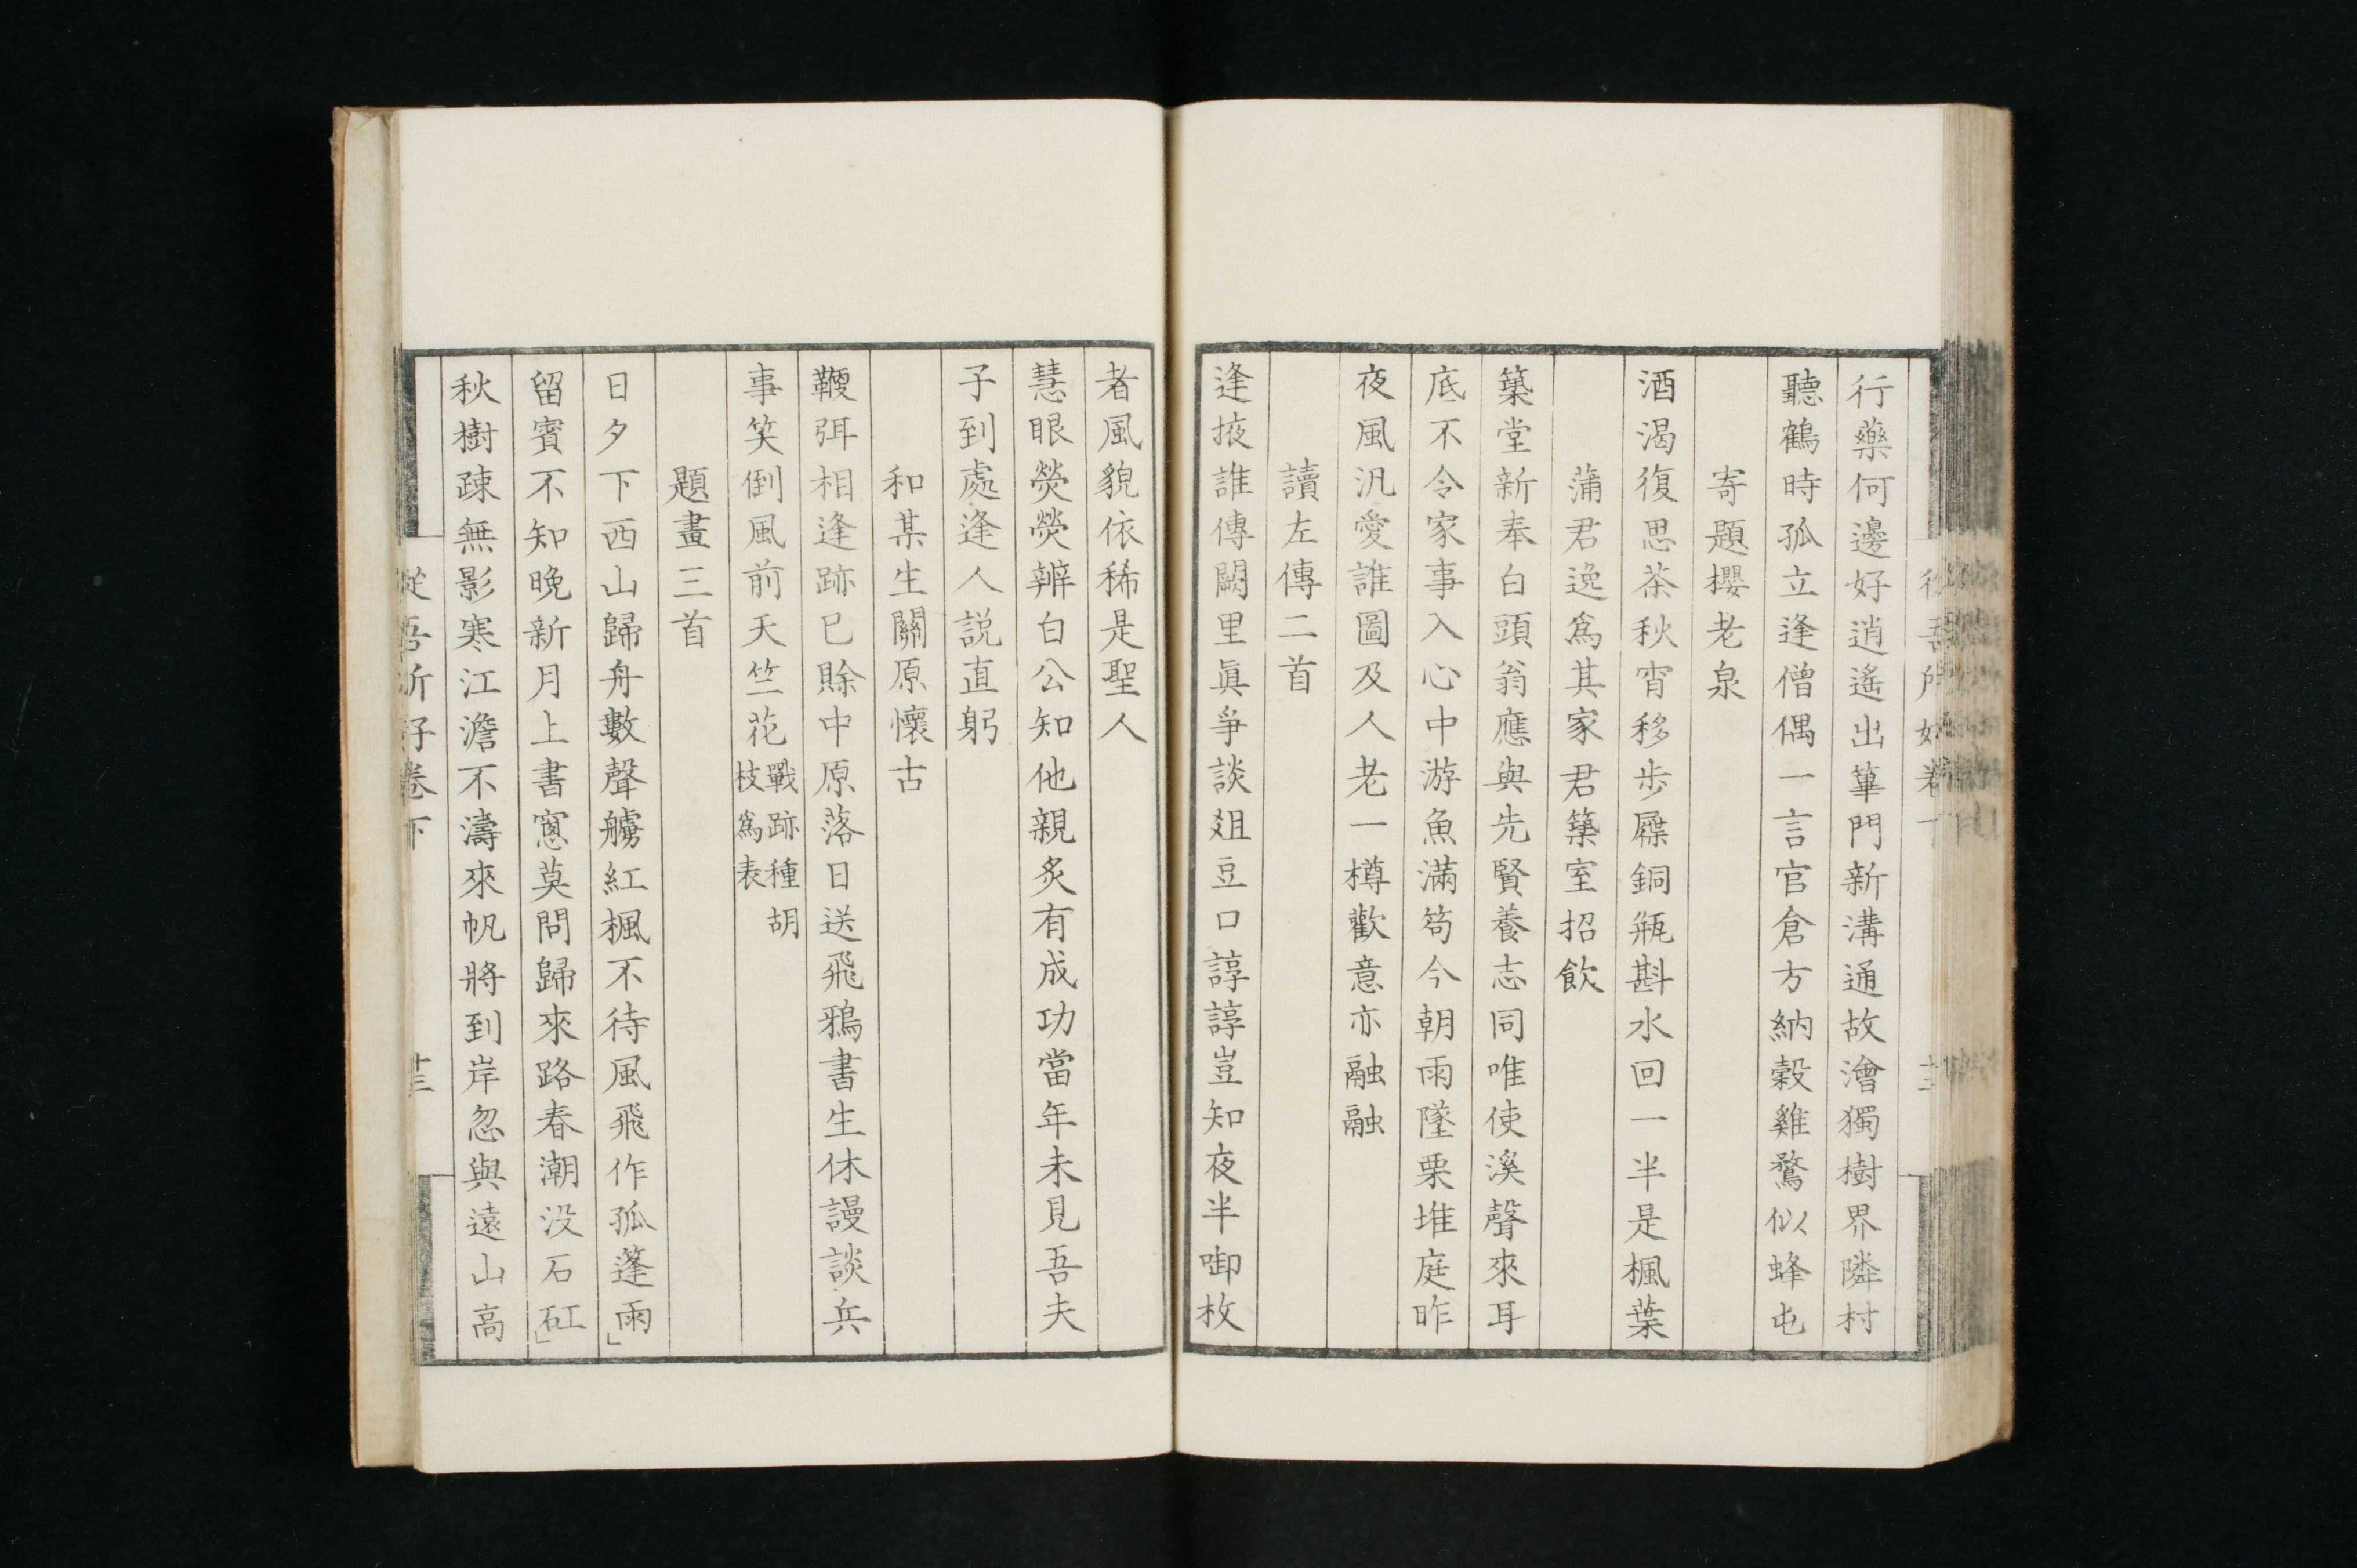 行藥何邊好逍遙出篳門新溝通故澮獨樹界隣村
聽鶴時孤立逢僧偶一言官倉方納穀雞鶩似蜂屯
寄題櫻老泉
酒渴復思茶秋宵移步屧銅瓶斟水回一半是楓葉
蒲君逸爲其家君築室招飮
築堂新奉白頭翁應與先賢養志同唯使溪聲來耳
底不令家事入心中游魚滿笱今朝雨墜栗堆庭昨
夜風汎愛誰圖及人老一樽歡意亦融融
讀左傳二首
逢掖誰傳闕里眞爭談爼豆口諄諄豈知夜半啣枚
者風貌依稀是聖人
慧眼熒熒辨白公知他親炙有成功當年未見吾夫
子到處逢人説直躬
和某生關原懷古
鞭弭相逢跡已賒中原落日送飛鴉書生休謾談兵
事笑倒風前天竺花戰跡種胡
枝爲表
題畫三首
日夕下西山歸舟數聲艣紅楓不待風飛作孤蓬雨」
留賓不知晩新月上書窻莫問歸來路春潮没石矼」
秋樹疎無影寒江澹不濤來帆將到岸忽與遠山高
從吾所好卷下
十三